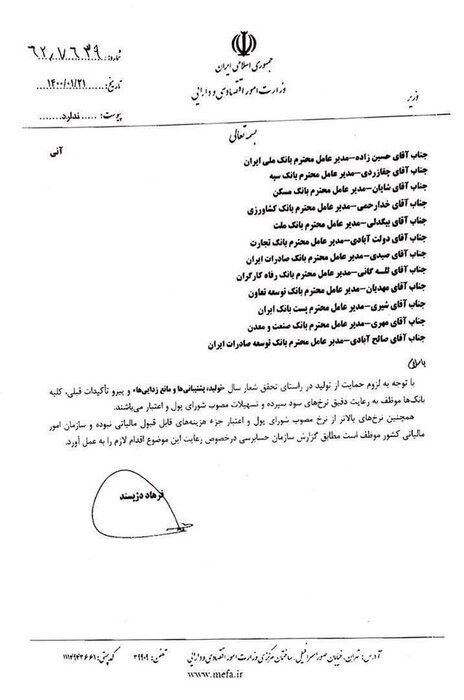 جمهوری اسلامی ایران
وزارت امور اقتصادی و دارایی
وزیر
شماره: ۶۲/۷۶۳۹
تاریخ: ۱۴۰۰/۰۱/۲۱
پیوست: ..... ندارد......
بسمه تعالی
آنی
جناب آقای حسین زاده–مدیر عامل محترم بانک ملی ایران
جناب آقای چقازردی–مدیر عامل محترم بانک سپه
جناب آقای شایان–مدیر عامل محترم بانک مسکن
جناب آقای خدارحمی–مدیر عامل محترم بانک کشاورزی
جناب آقای بیگدلی–مدیر عامل محترم بانک ملت
جناب آقای دولت آبادی–مدیر عامل محترم بانک تجارت
جناب آقای صیدی–مدیر عامل محترم بانک صادرات ایران
جناب آقای لله گانی–مدیر عامل محترم بانک رفاه کارگران
جناب آقای مهدیان–مدیر عامل محترم بانک توسعه تعاون
جناب آقای شیری–مدیر عامل محترم پست بانک ایران
جناب آقای مهری–مدیر عامل محترم بانک صنعت و معدن
جناب آقای صالح آبادی–مدیر عامل محترم بانک توسعه صادرات ایران
باسلام
با توجه به لزوم حمایت از تولید در راستای تحقق شعار سال «تولید، پشتیبانی‌ها و مانع زدایی‌ها» و پیرو تأکیدات قبلی، کلیه
بانک‌ها موظف به رعایت دقیق نرخ‌های سود سپرده و تسهیلات مصوب شورای پول و اعتبار می‌باشند.
همچنین نرخ‌های بالاتر از نرخ مصوب شورای پول و اعتبار جزء هزینه‌های قابل قبول مالیاتی نبوده و سازمان امور
مالیاتی کشور موظف است مطابق گزارش سازمان حسابرسی درخصوص رعایت این موضوع اقدام لازم را به عمل آورد.
فرهاد دژپسند
آدرس: تهران، خیابان صوراسرافیل، ساختمان مرکزی وزارت امور اقتصادی و دارایی تلفن: ۳۹۹۰۹ کد پستی: ۱۱۱۴۹۴۳۶۶۱
www.mefa.ir